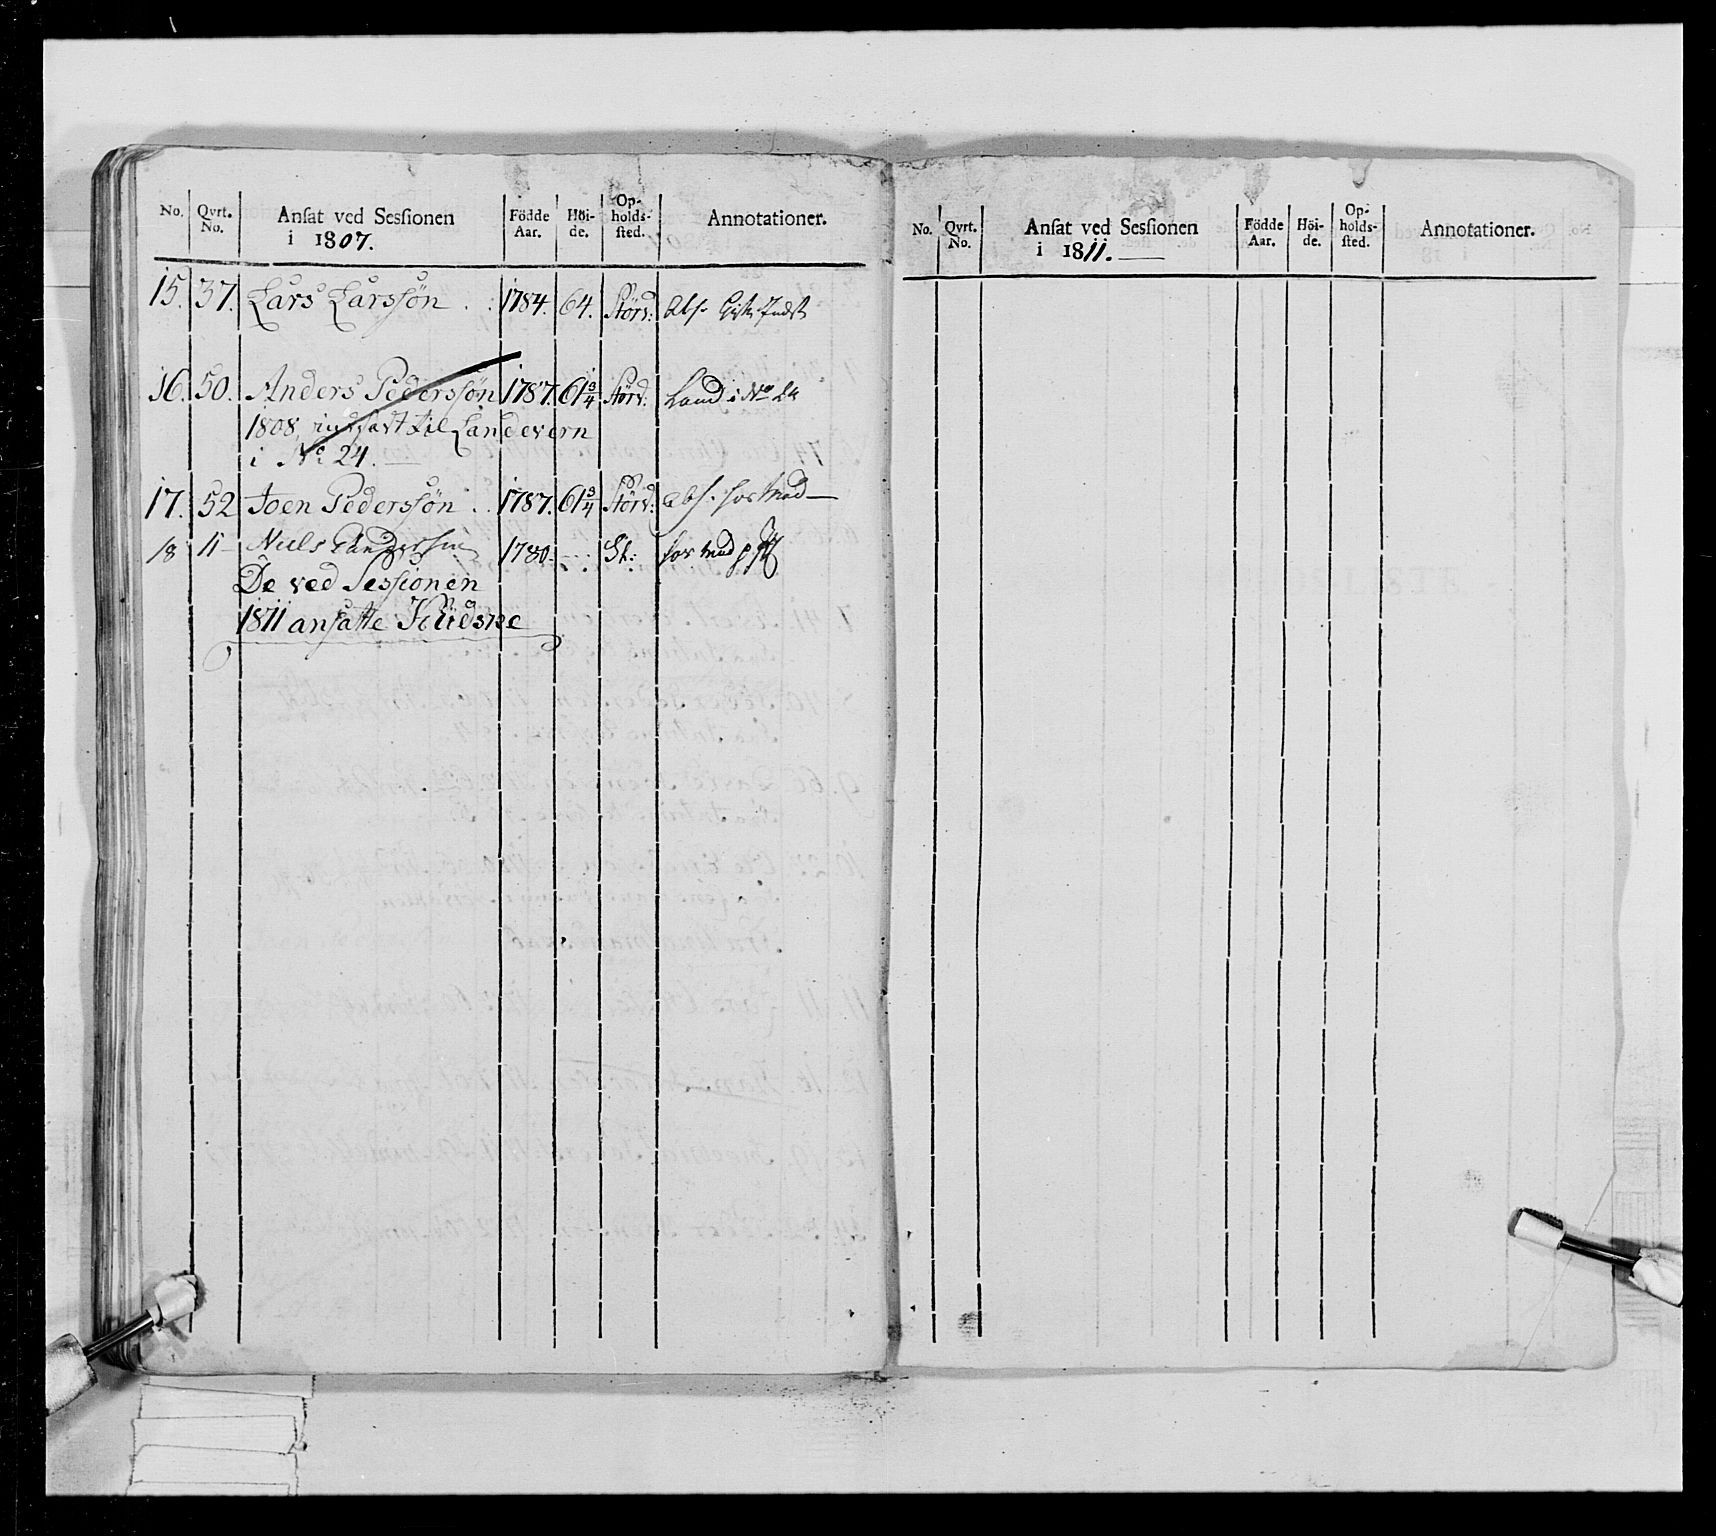 No. Qvrt. No. Ansat ved Sessionen i 1807. Födde Aar. Höi-de. Op-holds-sted. Annotationer.
15. 37. Lars Larssön 1784. 64. Störd: Abs.
16. 50. Anders Pederssön 1787. 61 3/4 Störd: Land i No 24
1808 indsat til Landevern
i No 24.
17. 52 Joen Pederssön 1787. 61 3/4 Störd: abs. for Mod
18 11 Niels 1780. St: for Mod
De ved Sessionen
1811 ansatte
No. Qvrt. No. Ansat ved Sessionen i 1811. Födde Aar. Höi-de. Op-holds-sted. Annotationer.